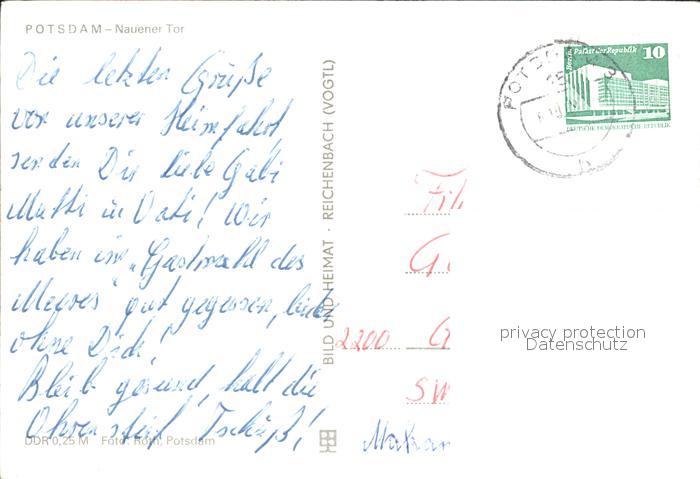 POTSDAM – Nauener Tor
Die letzten Grüße
vor unserer Heimfahrt
senden Dir liebe Gabi
Mutti u Vati! Wir
haben im "Gastmahl des
Meeres" gut gegessen, leider
ohne Dich!
Bleib gesund, halt die
Ohren steif Tschüß!
DDR 0,25 M Foto: Roth, Potsdam
BILD UND HEIMAT · REICHENBACH (VOGTL)
POTSDAM
Berlin, Palast der Republik 10
DEUTSCHE DEMOKRATISCHE REPUBLIK
2200 G
privacy protection
Datenschutz